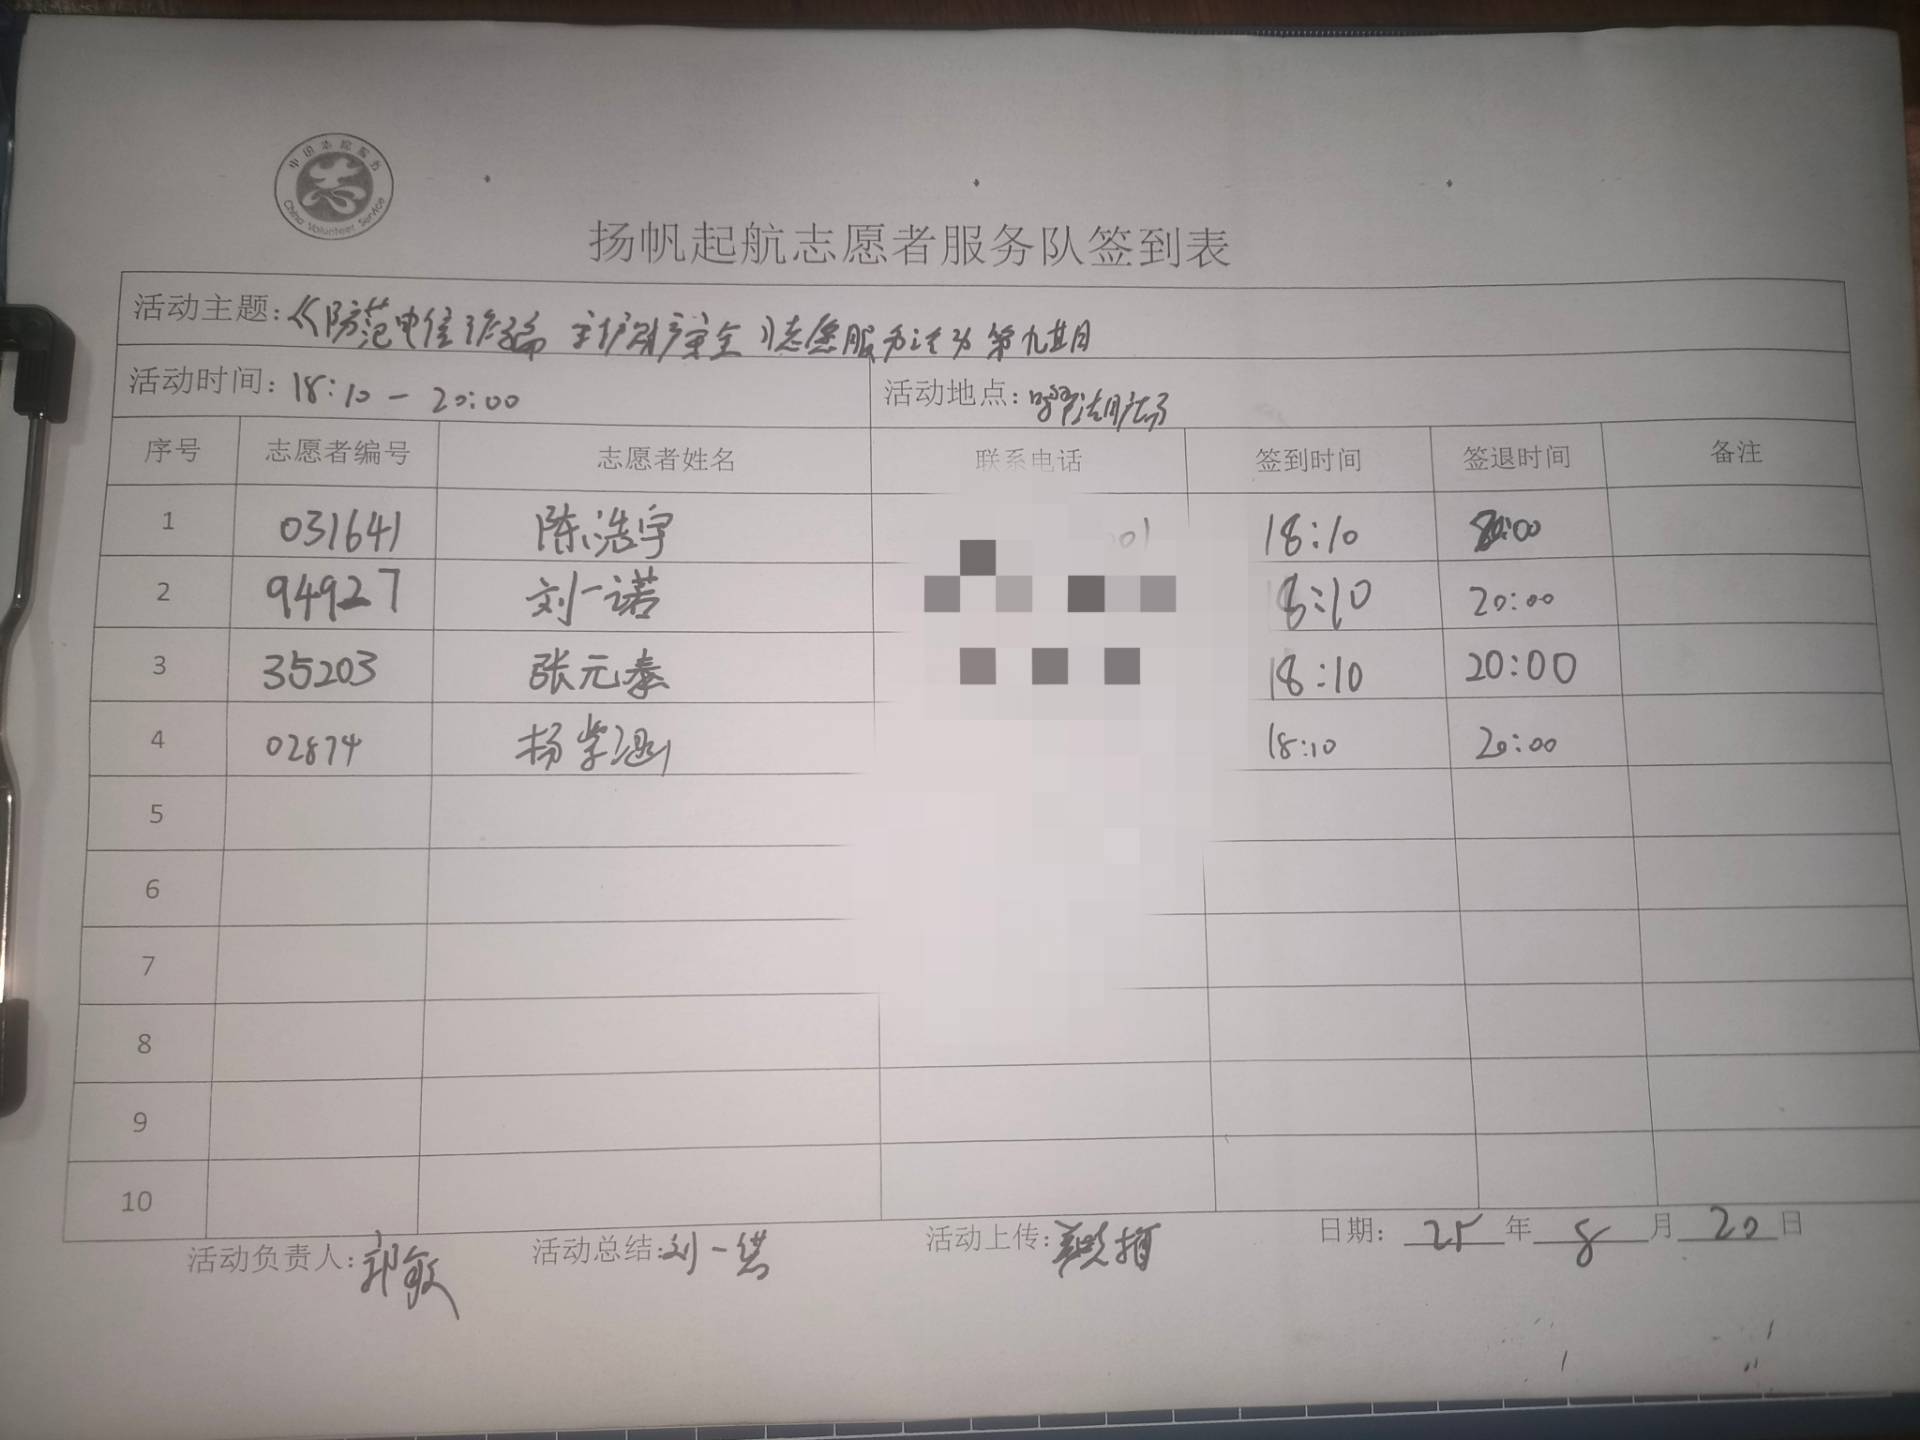 中国志愿服务
China Volunteer Service
扬帆起航志愿者服务队签到表
活动主题:《防范电信诈骗 守护财产安全》志愿服务活动第九期
活动时间: 18:10 - 20:00 活动地点:
序号 志愿者编号 志愿者姓名 联系电话 签到时间 签退时间 备注
1 031641 陈浩宇 18:10 20:00
2 94927 刘一诺 18:10 20:00
3 35203 张元泰 18:10 20:00
4 02874 杨紫涵 18:10 20:00
5
6
7
8
9
10
活动负责人: 郭敏 活动总结: 刘一诺 活动上传: 日期: 25 年 8 月 20 日